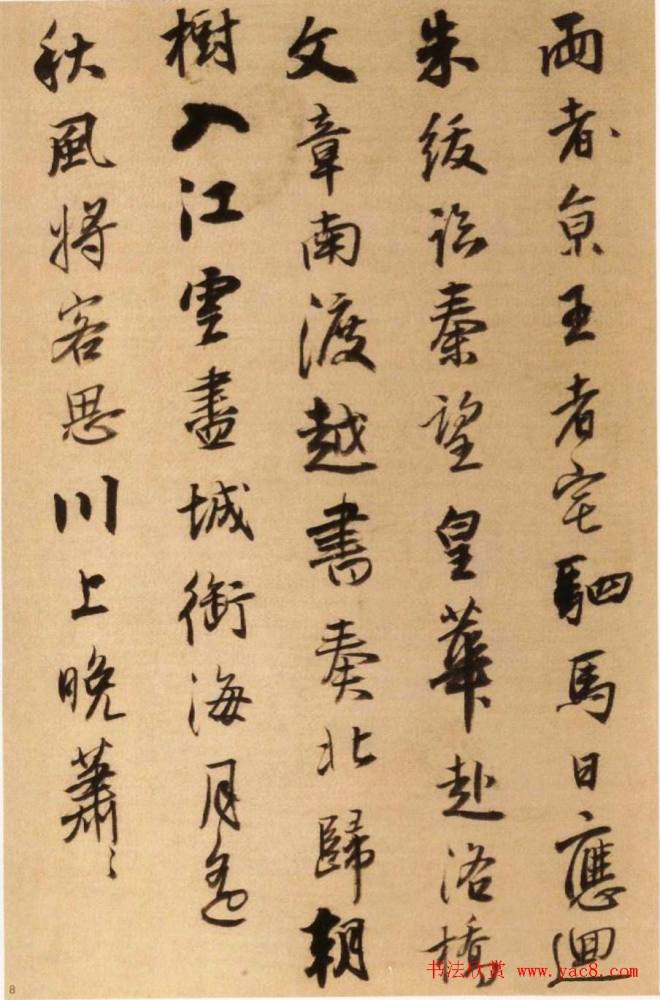 兩都京王者宅駟馬日應迴
朱紱臨秦望皇華赴洛橋
文章南渡越書奏北歸朝
樹入江雲盡城銜海月遙
秋風將客思川上晚蕭〻
8
书法欣赏 www.yac8.com